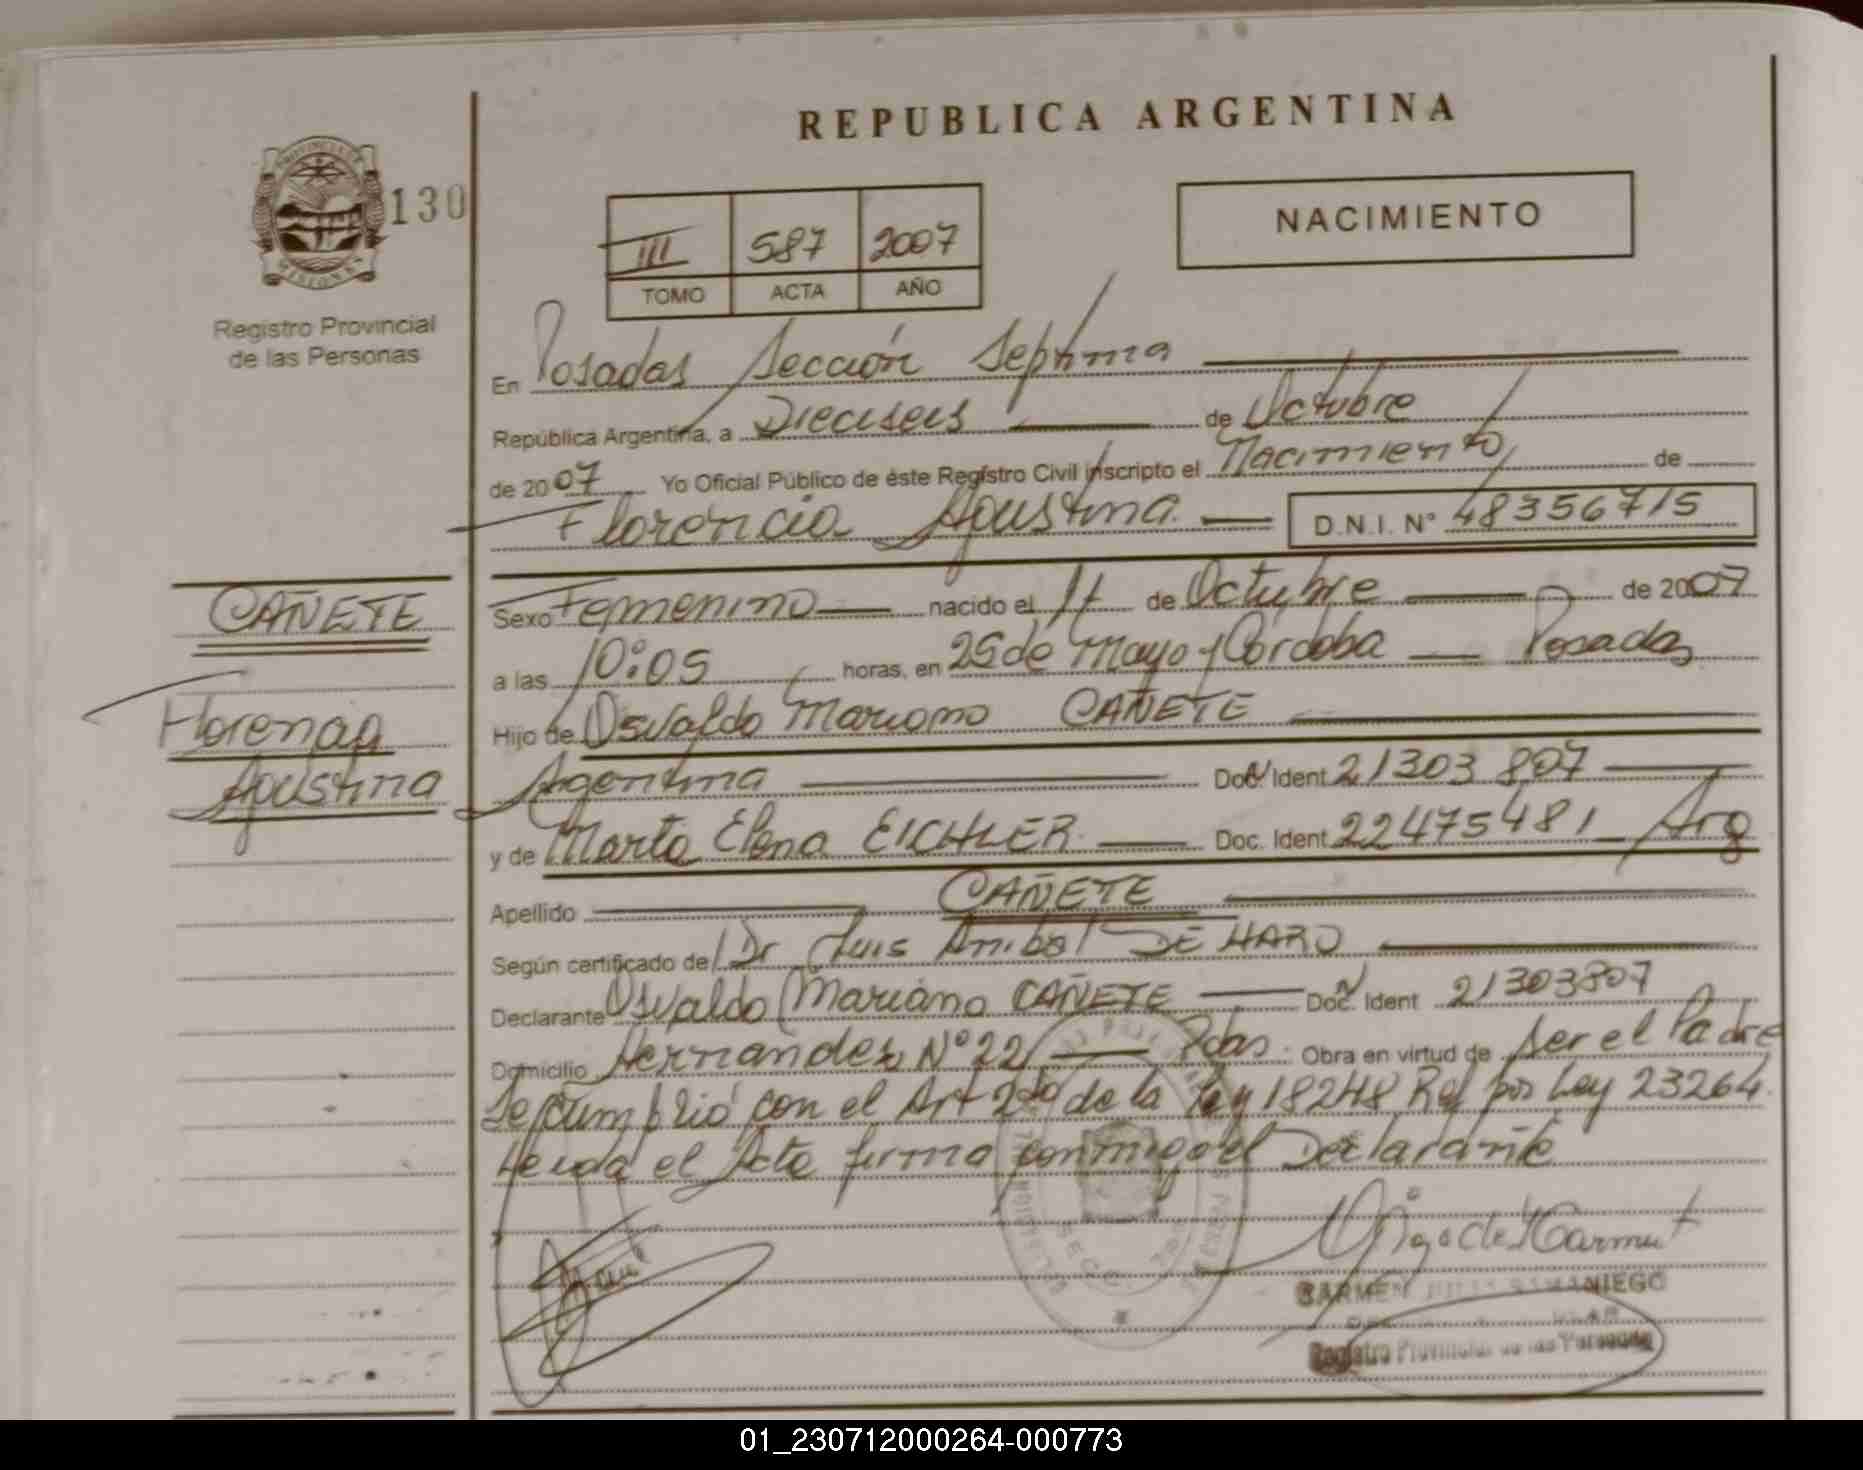 REPUBLICA ARGENTINA
PROVINCIA DE
MISIONES
130
Registro Provincial
de las Personas
III 587 2007
TOMO ACTA AÑO
NACIMIENTO
En Posadas Sección Septima
República Argentina, a Dieciseis de Octubre
de 2007 Yo Oficial Público de éste Registro Civil inscripto el Nacimiento de
Florencia Agustina D.N.I. N° 48356715
CAÑETE
Florencia
Agustina
Sexo Femenino nacido el 11 de Octubre de 2007
a las 10:05 horas, en 25 de Mayo y Córdoba Posadas
Hijo de Osvaldo Mariano CAÑETE
Argentina Doc. Ident 21303 807
y de Marta Elena EICHLER Doc. Ident. 22475481 Arg
Apellido CAÑETE
Según certificado de Dr Luis Anibal DE HARO
Declarante Osvaldo Mariano CAÑETE Doc. Ident 21303807
Domicilio Hernandez N° 22 Pdas. Obra en virtud de ser el Padre
Se cumplió con el Art 2do de la Ley 18248 Ref por Ley 23264.
Leida el Acta firma conmigo el Declarante
SECC.
CARMEN SAMANIEGO
Registro Provincial de las Personas
01_230712000264-000773